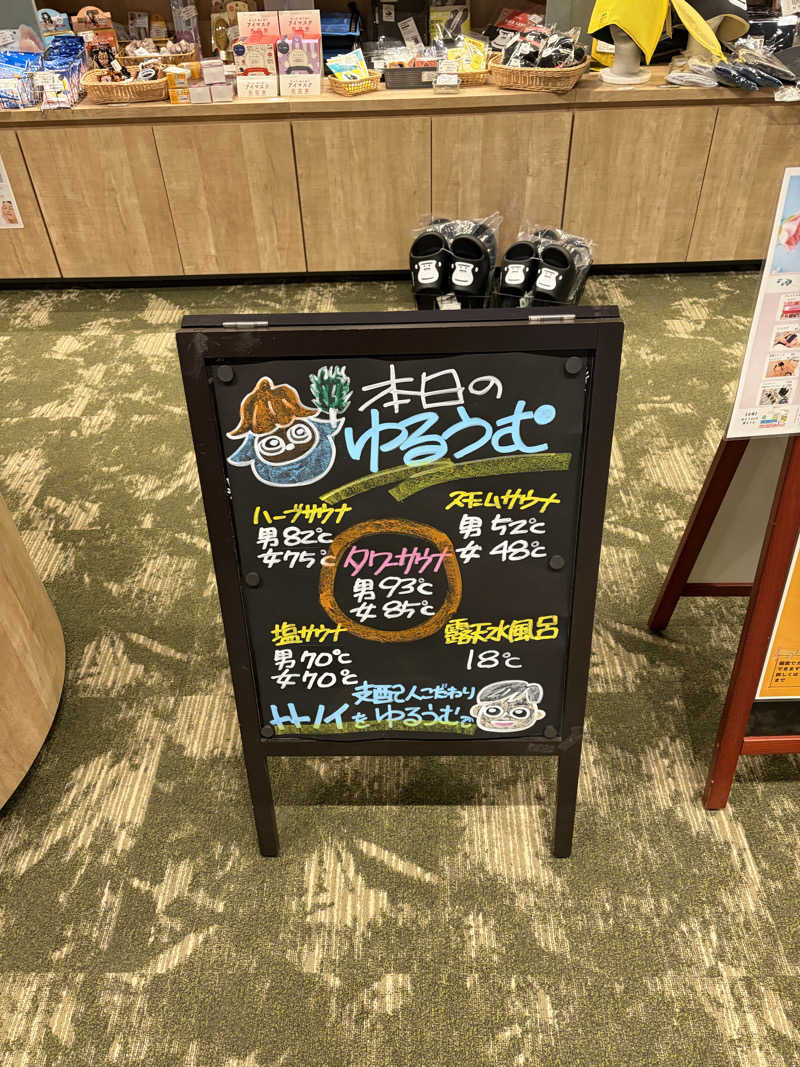 本日の
ゆるうむ
ハーブサウナ
男82℃
女75℃
スチームサウナ
男52℃
女48℃
タワーサウナ
男93℃
女85℃
塩サウナ
男70℃
女70℃
露天水風呂
18℃
支配人こだわり
サ ノイを ゆるうむで